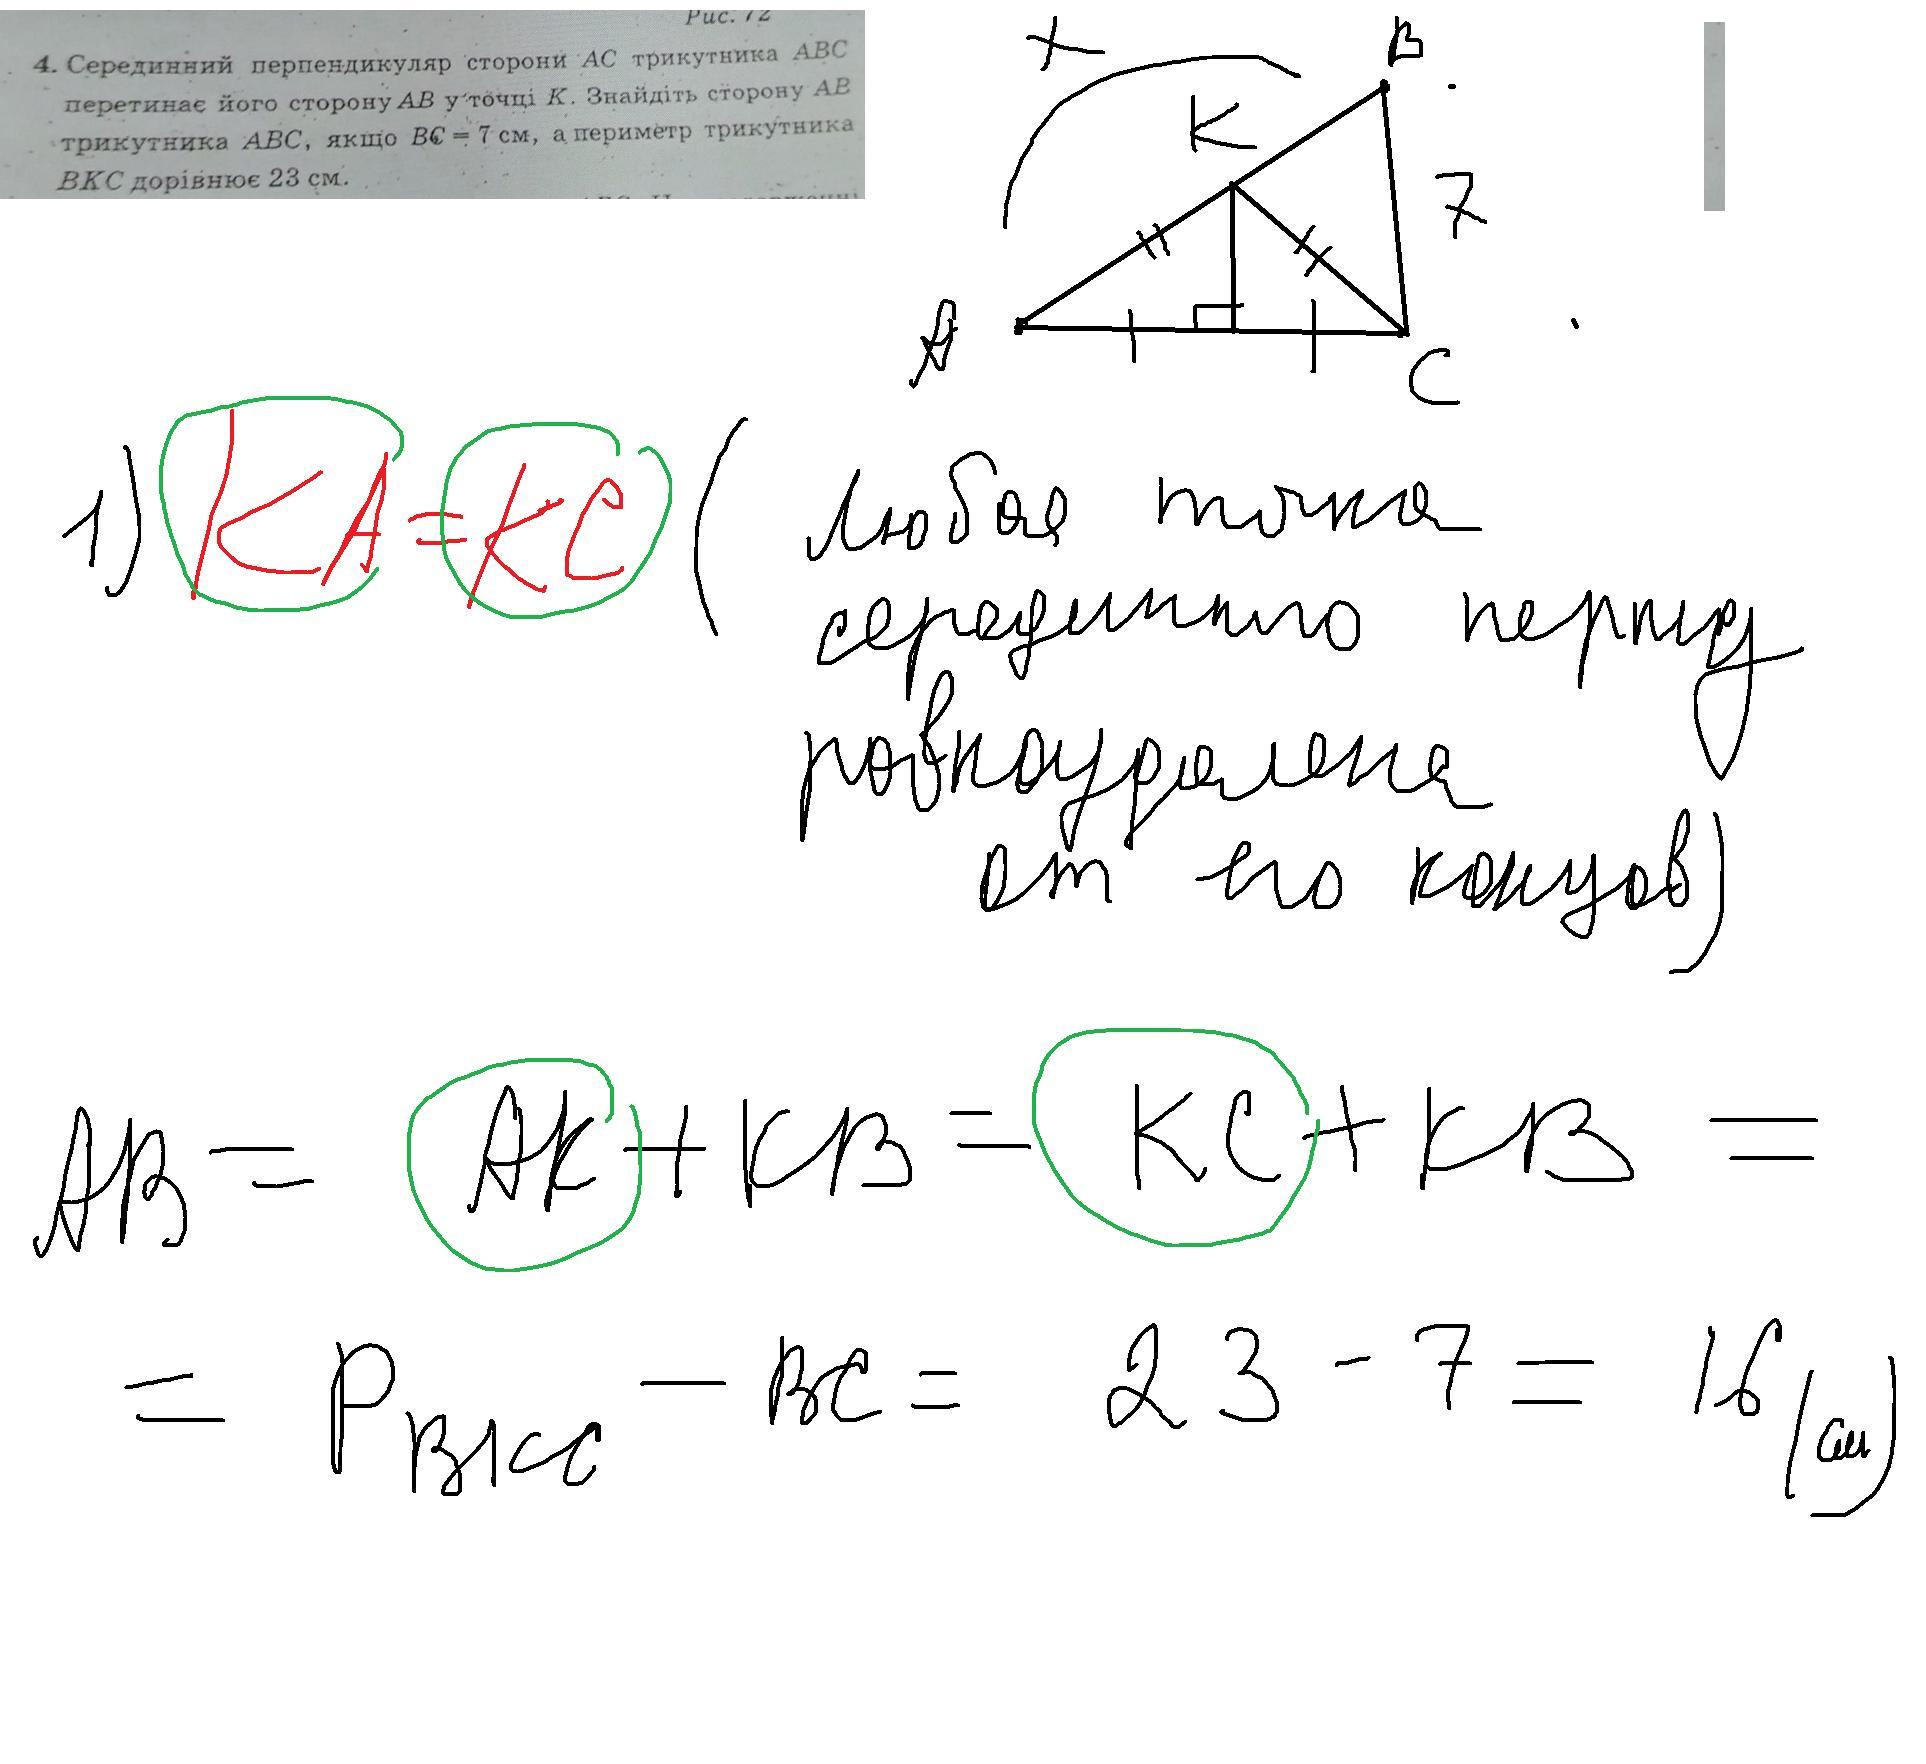 Рис. 72
4. Серединний перпендикуляр сторони AC трикутника ABC
перетинає його сторону AB у точці K. Знайдіть сторону AB
трикутника ABC, якщо BC = 7 см, а периметр трикутника
BKC дорівнює 23 см.
x
B
K
7
A
C
1) KA = KC (любая точка
серединного перпенд
равноудалена
от его концов)
AB = AK + KB = KC + KB =
= P BKC - BC = 23 - 7 = 16 (см)